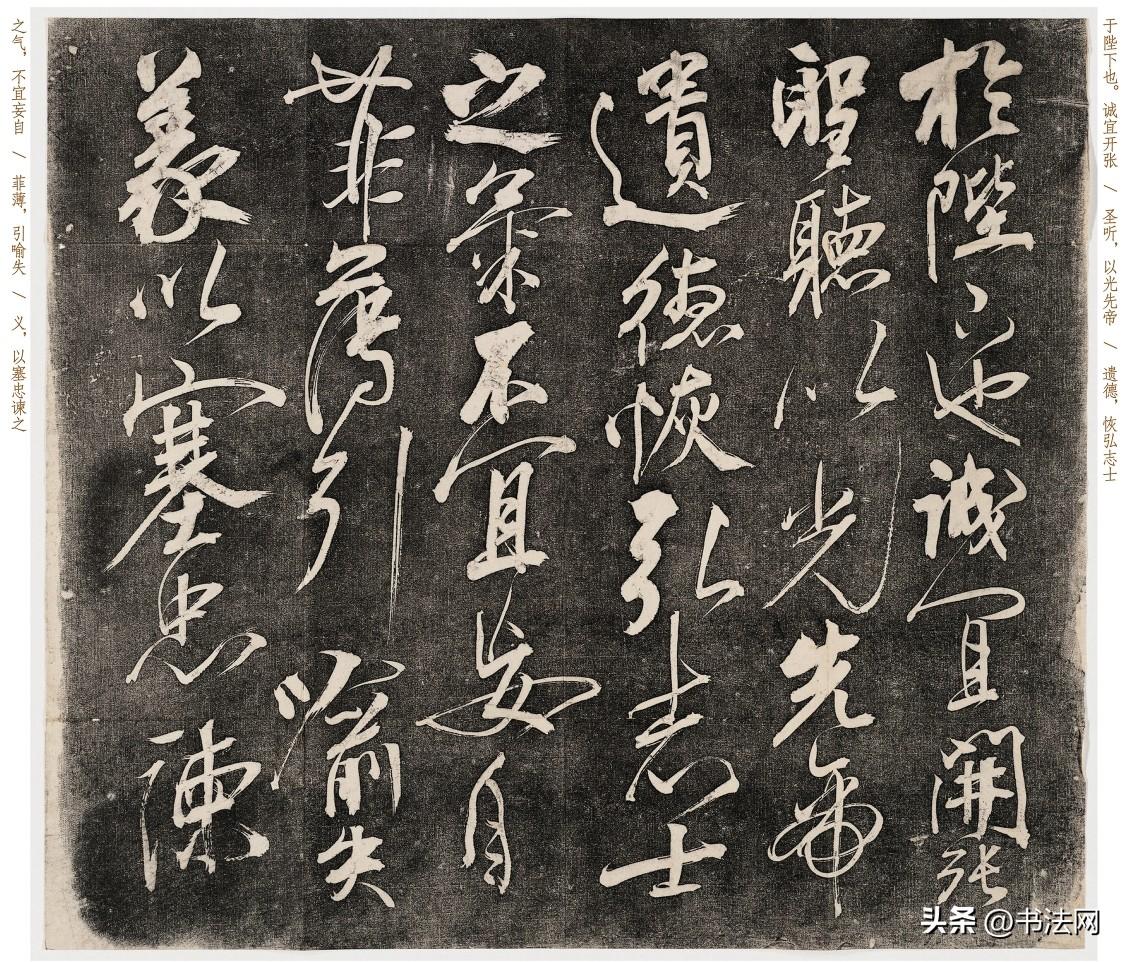 于陛下也。诚宜开张 / 圣听，以光先帝 / 遗德，恢弘志士
於陛下也誠宜開張
聖聽以光先帝
遺德恢弘志士
之氣不宜妄自
菲薄引喻失
義以塞忠諫
之气，不宜妄自 / 菲薄，引喻失 / 义，以塞忠谏之
头条 @书法网